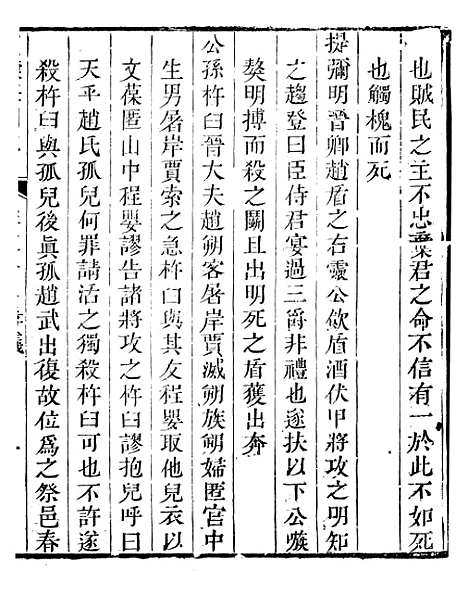 也賊民之主不忠棄君之命不信有一於此不如死
也觸槐而死
提彌明晉卿趙盾之右靈公飲盾酒伏甲將攻之明知
之趨登曰臣侍君宴過三爵非禮也遂扶以下公嗾
獒明搏而殺之鬭且出明死之盾獲出奔
公孫杵臼晉大夫趙朔客屠岸賈滅朔族朔婦匿宮中
生男屠岸賈索之急杵臼與其友程嬰取他兒衣以
文葆匿山中程嬰謬告諸將攻之杵臼謬抱兒呼曰
天乎趙氏孤兒何罪請活之獨殺杵臼可也不許遂
殺杵臼與孤兒後眞孤趙武出復故位爲之祭邑春